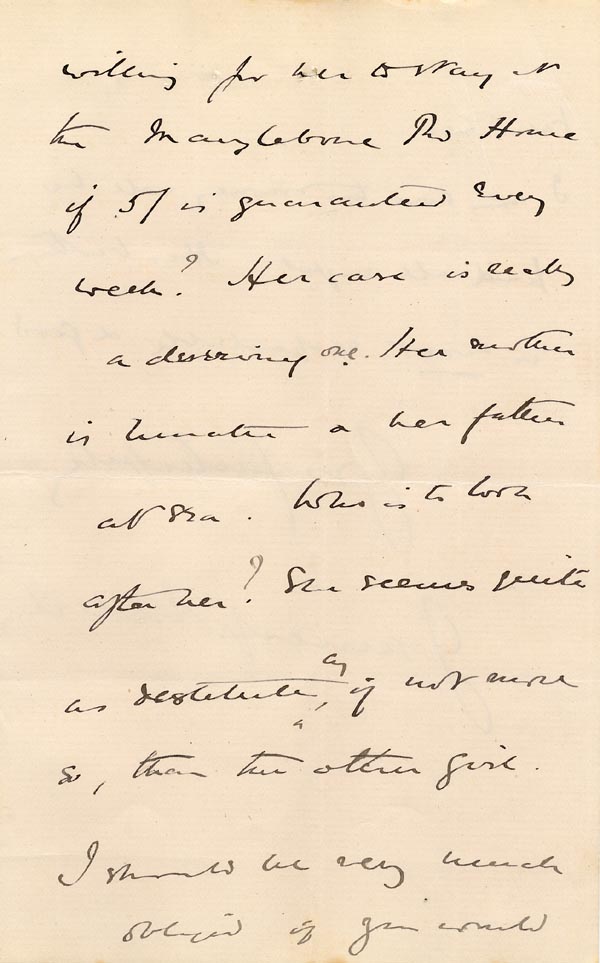 willing for her to stay at
the Marylebone Home
if 5/ is guaranteed every
week? Her case is really
a deserving one. Her mother
is lunatic & her father
at sea. Who is to look
after her? She seems quite
as destitute, as, if not more
so, than the other girl.
I should be very much
obliged if you would